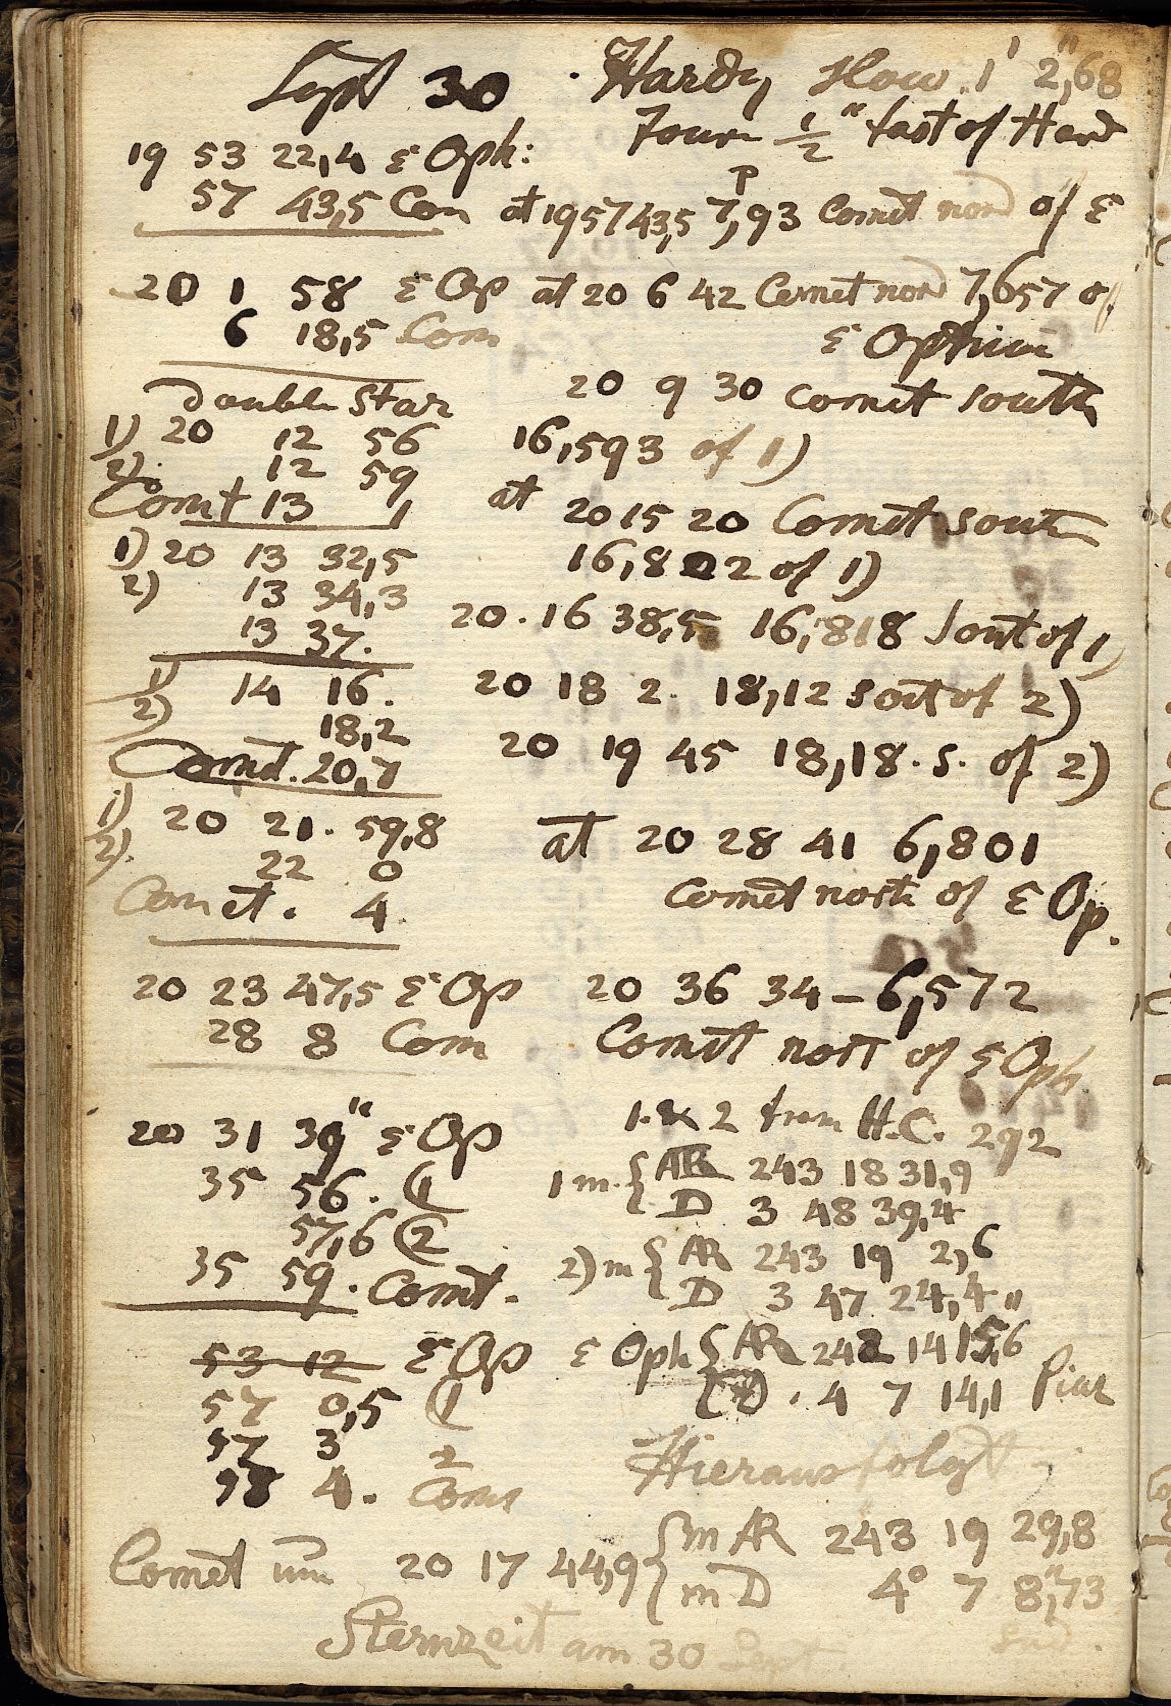 Sept 30 · Hardy slow 1' 2",68
Fourn 1/2" fast of Hard
19 53 22,4 ε Oph:
57 43,5 Com at 19 57 43,5 7,93 Comet nord of ε
P
20 1 58 ε Op at 20 6 42 Comet nord 7,657 of
6 18,5 Com
ε Ophiuci
Double Star
20 9 30 comet south
1) 20 12 56
16,593 of 1)
2) 12 59
Comt 13 1
at 20 15 20 Comet south
1) 20 13 32,5
16,802 of 1)
2) 13 34,3
13 37.
20 . 16 38,5 16,818 Sout of 1)
1) 14 16.
20 18 2. 18,12 sout of 2)
2) 18,2
Comet. 20,7
20 19 45 18,18. s. of 2)
1) 20 21. 59,8
at 20 28 41 6,801
2). 22 0
Comet. 4.
Comet north of ε Op.
20 23 47,5 ε Op
20 36 34 – 6,572
28 8 Com
Comet nort of ε Oph
20 31 39" ε Op
1. & 2 from H.C. 292
35 56. (1
1 m. { AR 243 18 31,9
D 3 48 39,4
57,6 (2
2) m { AR 243 19 2,6
35 59. Comt.
D 3 47 24,4"
53 12 ε Op
ε Oph { AR 242 14 15,6
D. 4 7 14,1 Piaz
57 0,5 (1
57 3 2
Hieraus folgt
98 4. Come
Comet um 20 17 44,9 { m AR 243 19 29,8
m D 4° 7 8",73
Sternzeit am 30 Sept.
Sud.